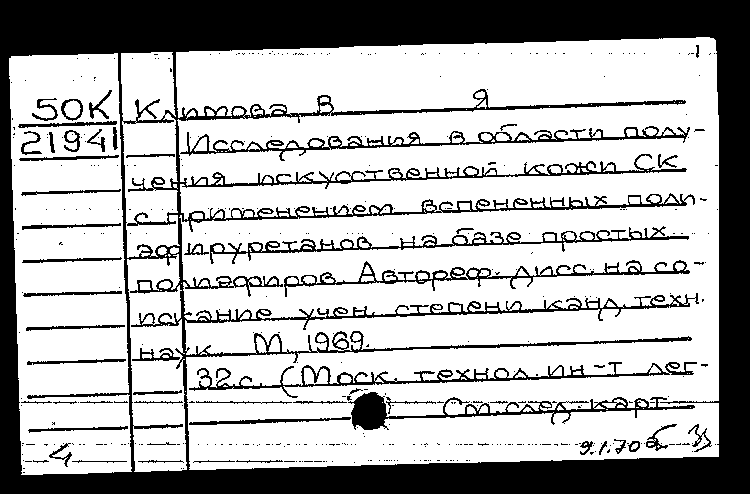 1
50К Климова, В Я
21941 Исследования в области полу-
чения искусственной кожи СК
с применением вспененных поли-
эфируретанов на базе простых
полиэфиров. Автореф. дисс. на со-
искание учен. степени канд. техн.
наук М., 1969.
32 с. (Моск. технол. ин-т лег-
См. след. карт
4 9.1.70